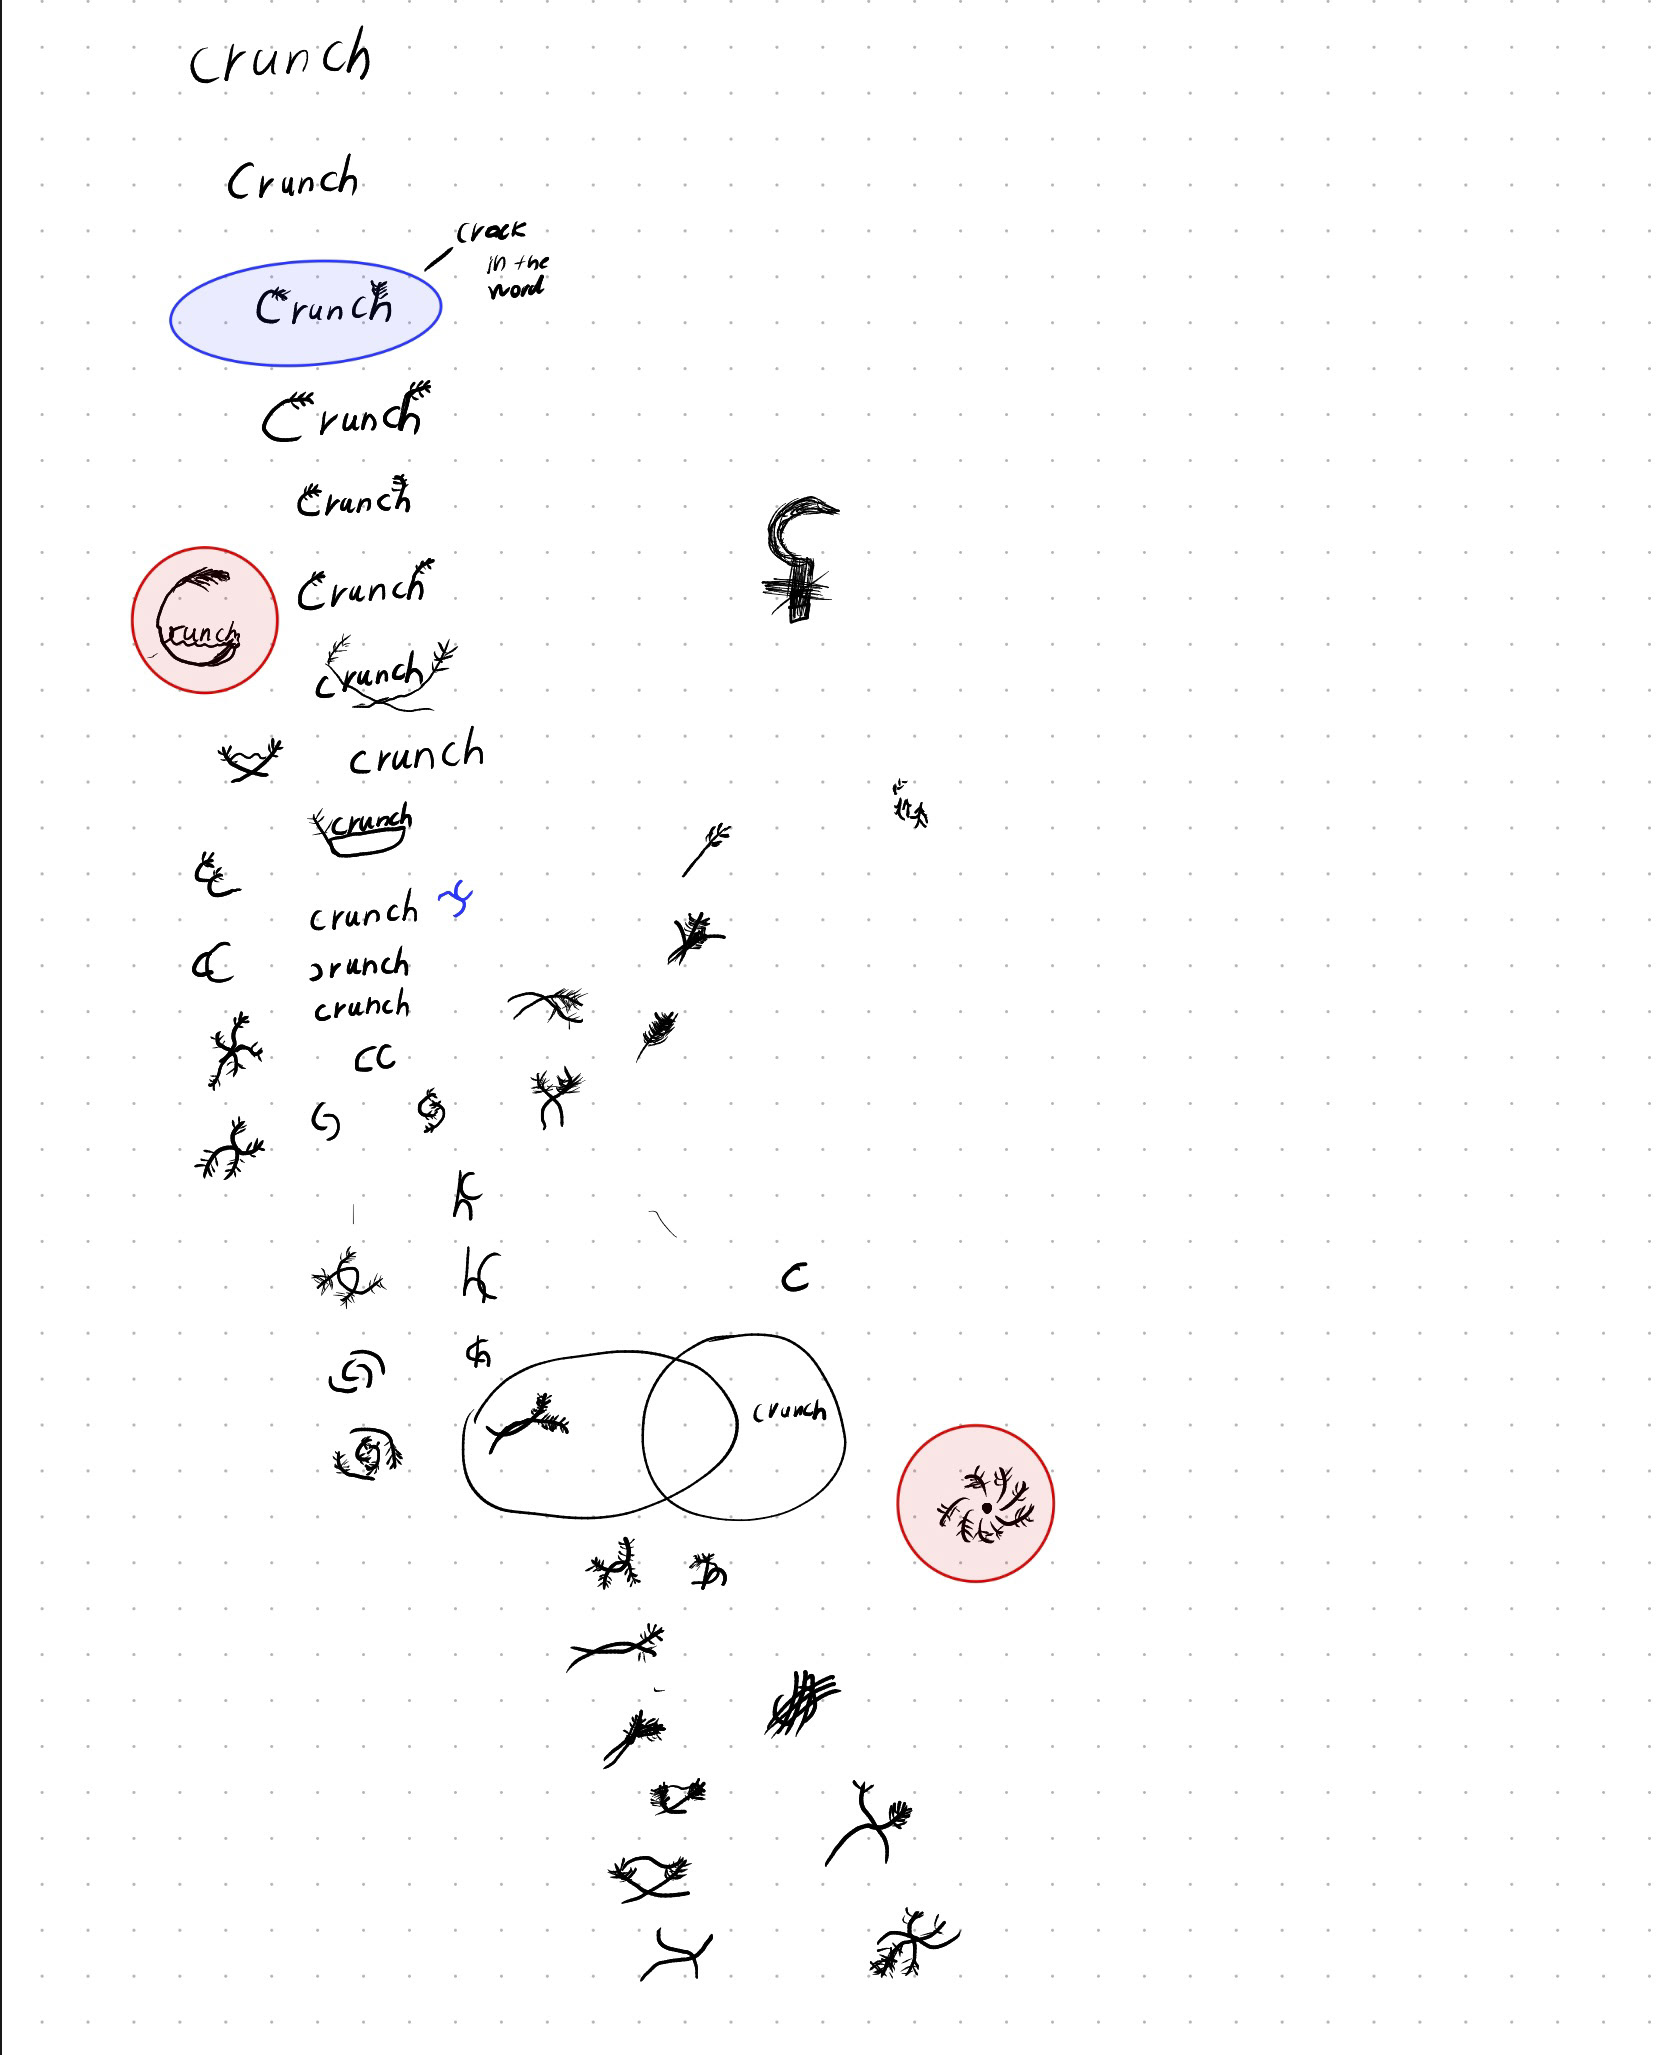 crunch
Crunch
crack
in the
word
Crunch
Crunch
Crunch
Crunch
Crunch
crunch
crunch
crunch
crunch
crunch
crunch
cc
c
crunch